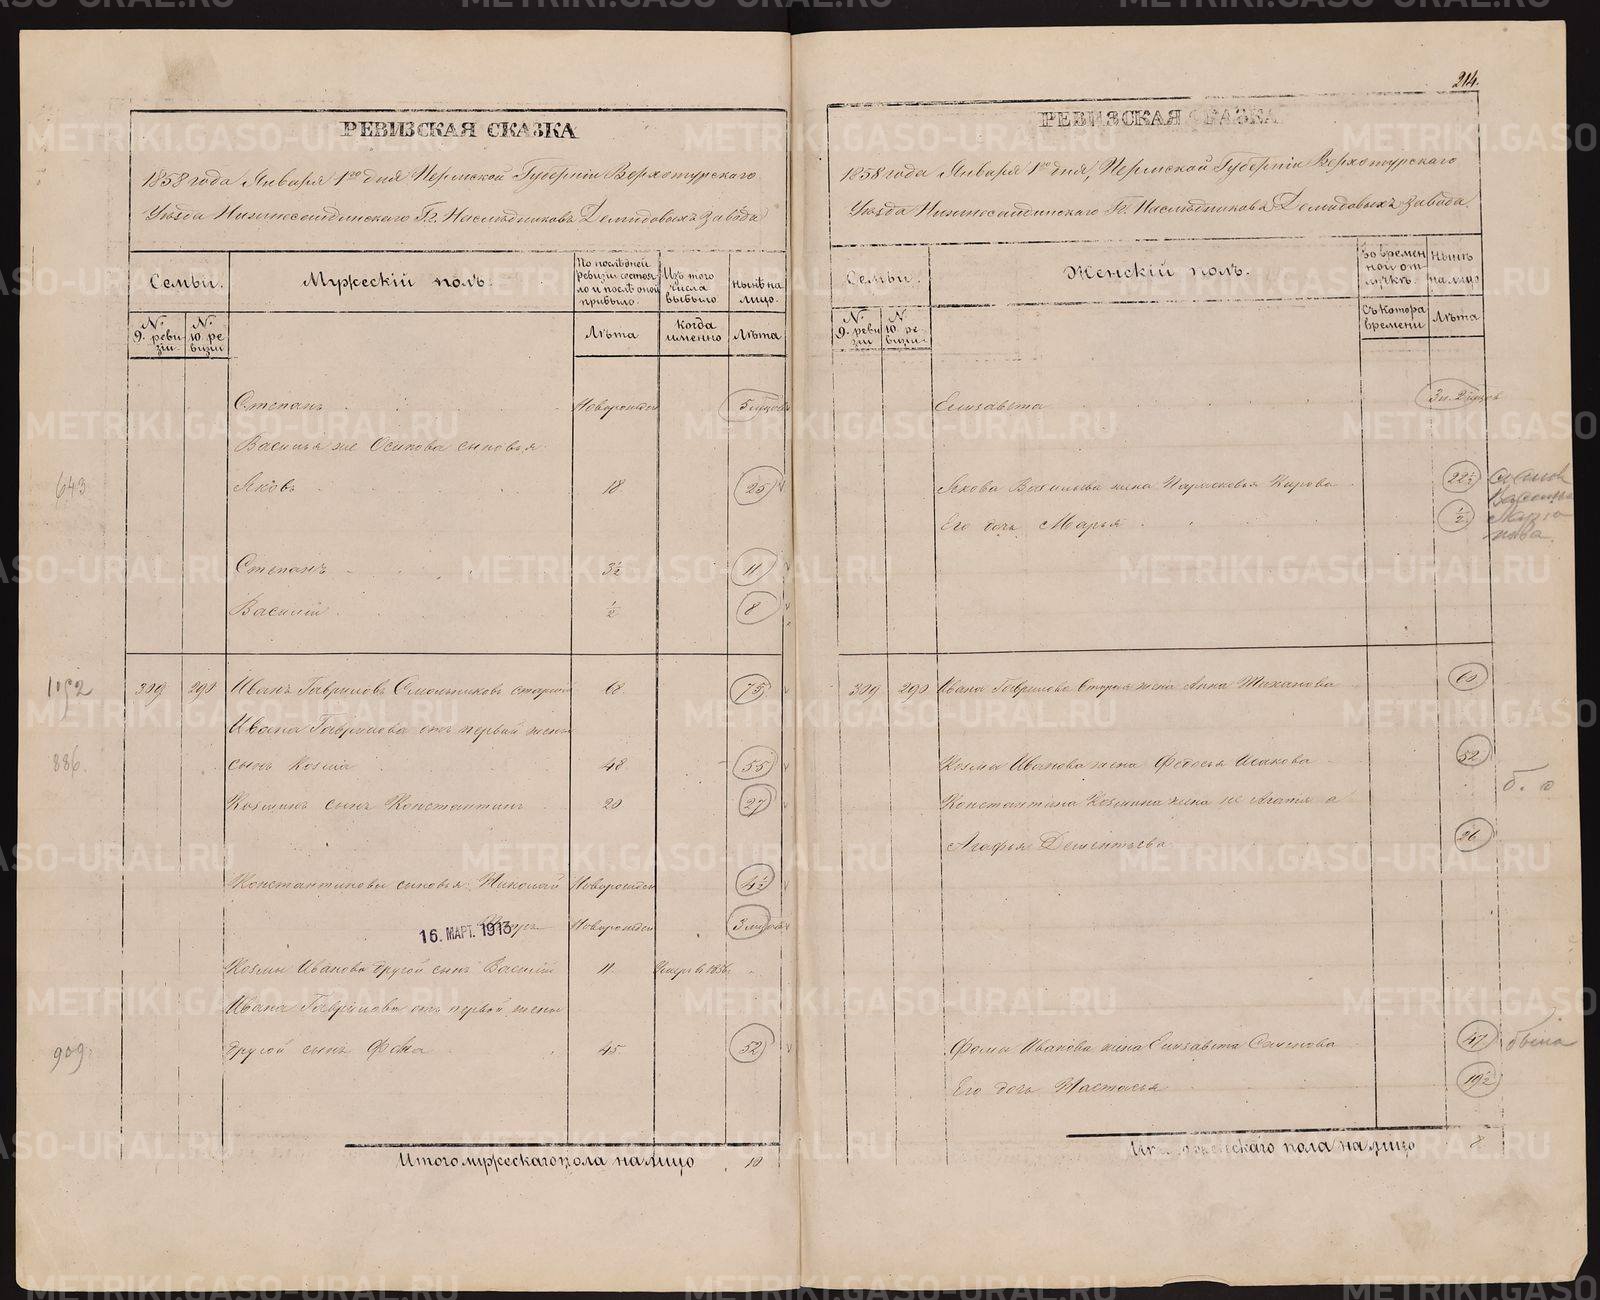 214.
РЕВИЗСКАЯ СКАЗКА
1858 года Января 1го дня Пермской Губерніи Верхотурскаго
Уѣзда Нижносалдинскаго Гг. Наслѣдниковъ Демидовыхъ завода
Семьи.
Мужескій полъ.
По послѣдней ревизіи состояло и послѣ оной прибыло.
Изъ того числа выбыло
нынѣ на лицо.
№ 9. ревизіи
№ 10 ревизіи
Лѣта
Когда именно
Лѣта
Степанъ Новорожден 5 мѣсяцов
Василья же Осипова сыновья
643 Яковъ 18 25
Степанъ 3½ 11
Василій ½ 8
1192 309 290 Иванъ Гавриловъ Смольниковъ старшій 68 75
Ивана Гаврилова отъ первой жены
886. сынъ Козма 48 55
Козминъ сынъ Константинъ 20 27
Константиновы сыновья: Николай Новорожден 4½
Новорожден 3 мѣсяца
16. МАРТ. 1913
Козмы Иванова другой сынъ Василій 11 1856
Ивана Гаврилова отъ первой жены
909. другой сынъ Фома 45 52
Итого мужескаго пола на лицо 10
РЕВИЗСКАЯ СКАЗКА
1858 года Января 1го дня, Пермской Губерніи Верхотурскаго
Уѣзда Нижносалдинскаго Гг. Наслѣдниковъ Демидовыхъ завода.
Семьи.
Женскій полъ.
Во временной отлучкѣ.
Нынѣ на лицо
№ 9. ревизіи
№ 10. ревизіи
Съ котора времени
Лѣта
Елизавета
Якова Васильева жена Парасковья Карпова 22½
Его дочь Марья ½
309 290 Ивана Гаврилова вторая жена Анна 60
Козмы Иванова жена Федосья Исакова 52
Константина Козмина жена не Агатія а
б. о
Агафья Дементьева 26
Фомы Иванова жена Елизавета Семенова 47
Его дочь Настасья 19½
Итого женскаго пола на лицо 8
METRIKI.GASO-URAL.RU